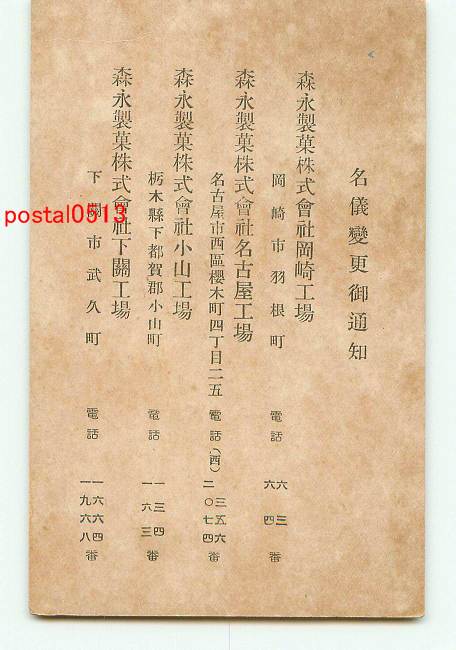 名儀變更御通知
森永製菓株式會社岡崎工場
岡崎市羽根町 電話 六三 六四番
森永製菓株式會社名古屋工場
名古屋市西區櫻木町四丁目二五 電話(西) 三五六 二〇七四番
森永製菓株式會社小山工場
栃木縣下都賀郡小山町 電話 一三四 一六三番
森永製菓株式會社下關工場
下關市武久町 電話 一六六四 一九六八番
postal0913